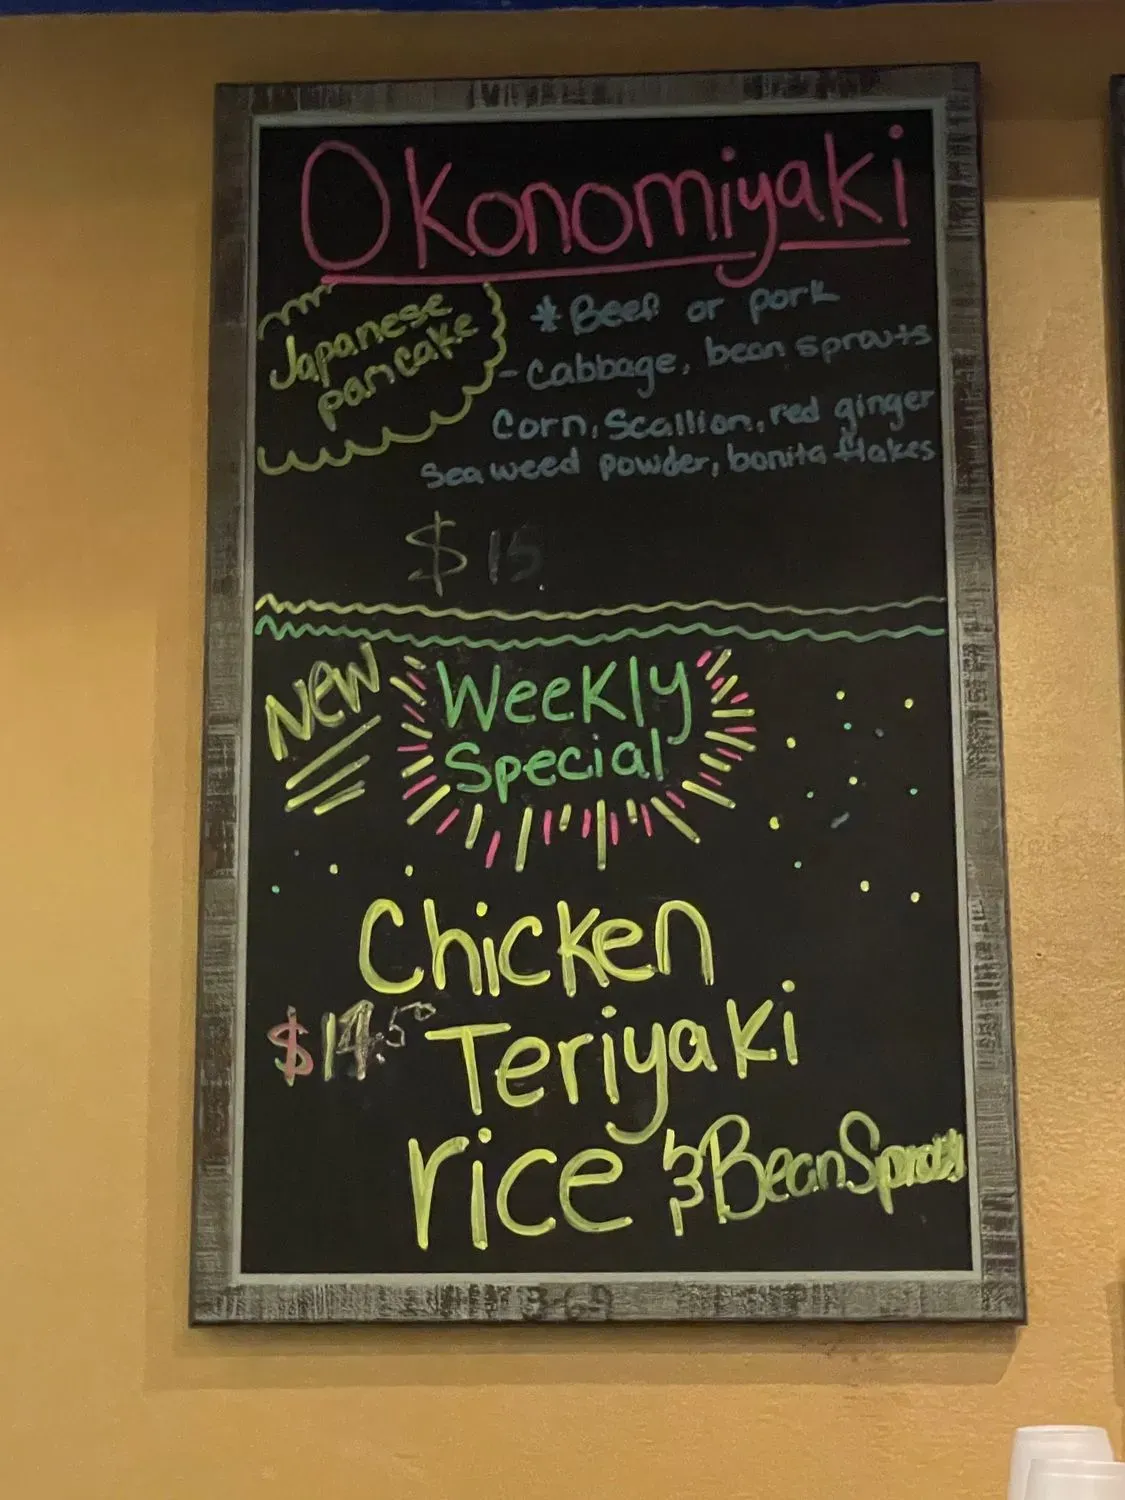 Okonomiyaki
Japanese
pancake
* Beef or pork
- Cabbage, bean sprouts
Corn, Scallion, red ginger
Seaweed powder, bonita flakes
$15
New
Weekly
Special
Chicken
$14.50
Teriyaki
rice & Bean Sprouts